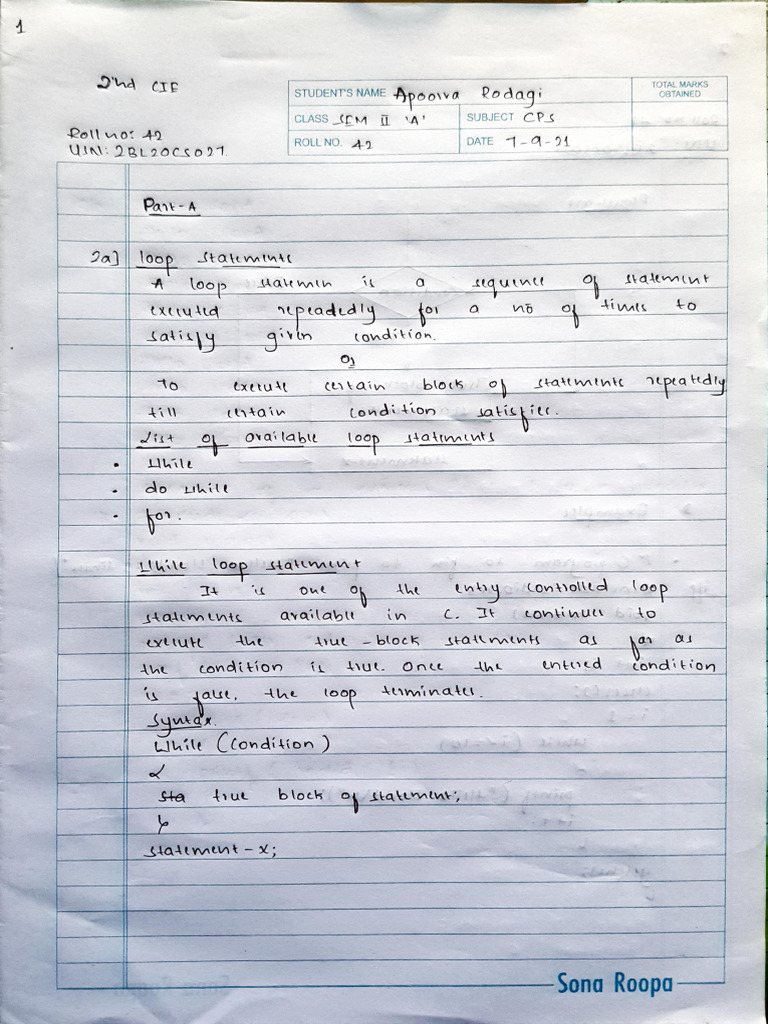 1
2nd CIE
STUDENT'S NAME Apoorva Rodagi
TOTAL MARKS OBTAINED
CLASS SEM II 'A' SUBJECT CPS
Roll no: 42
ROLL NO. 42 DATE 7-9-21
USN: 2BL20CS027
Part-A
2a] loop statements
A loop statemen is a sequence of statement
executed repeadedly for a no of times to
satisfy given condition.
Or
To execute certain block of statements repeatedly
till certain condition satisfies.
List of available loop statements
• While
• do while
• for.
While loop statement
It is one of the entry controlled loop
statements available in C. It continues to
execute the true-block statements as far as
the condition is true. Once the entered condition
is false, the loop terminates.
Syntax.
While (condition)
{
sta true block of statement;
}
statement-x;
Sona Roopa